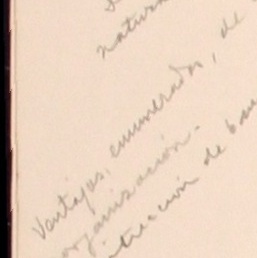 natura
Ventajas, enumerados, de
organización.
trucción de bas